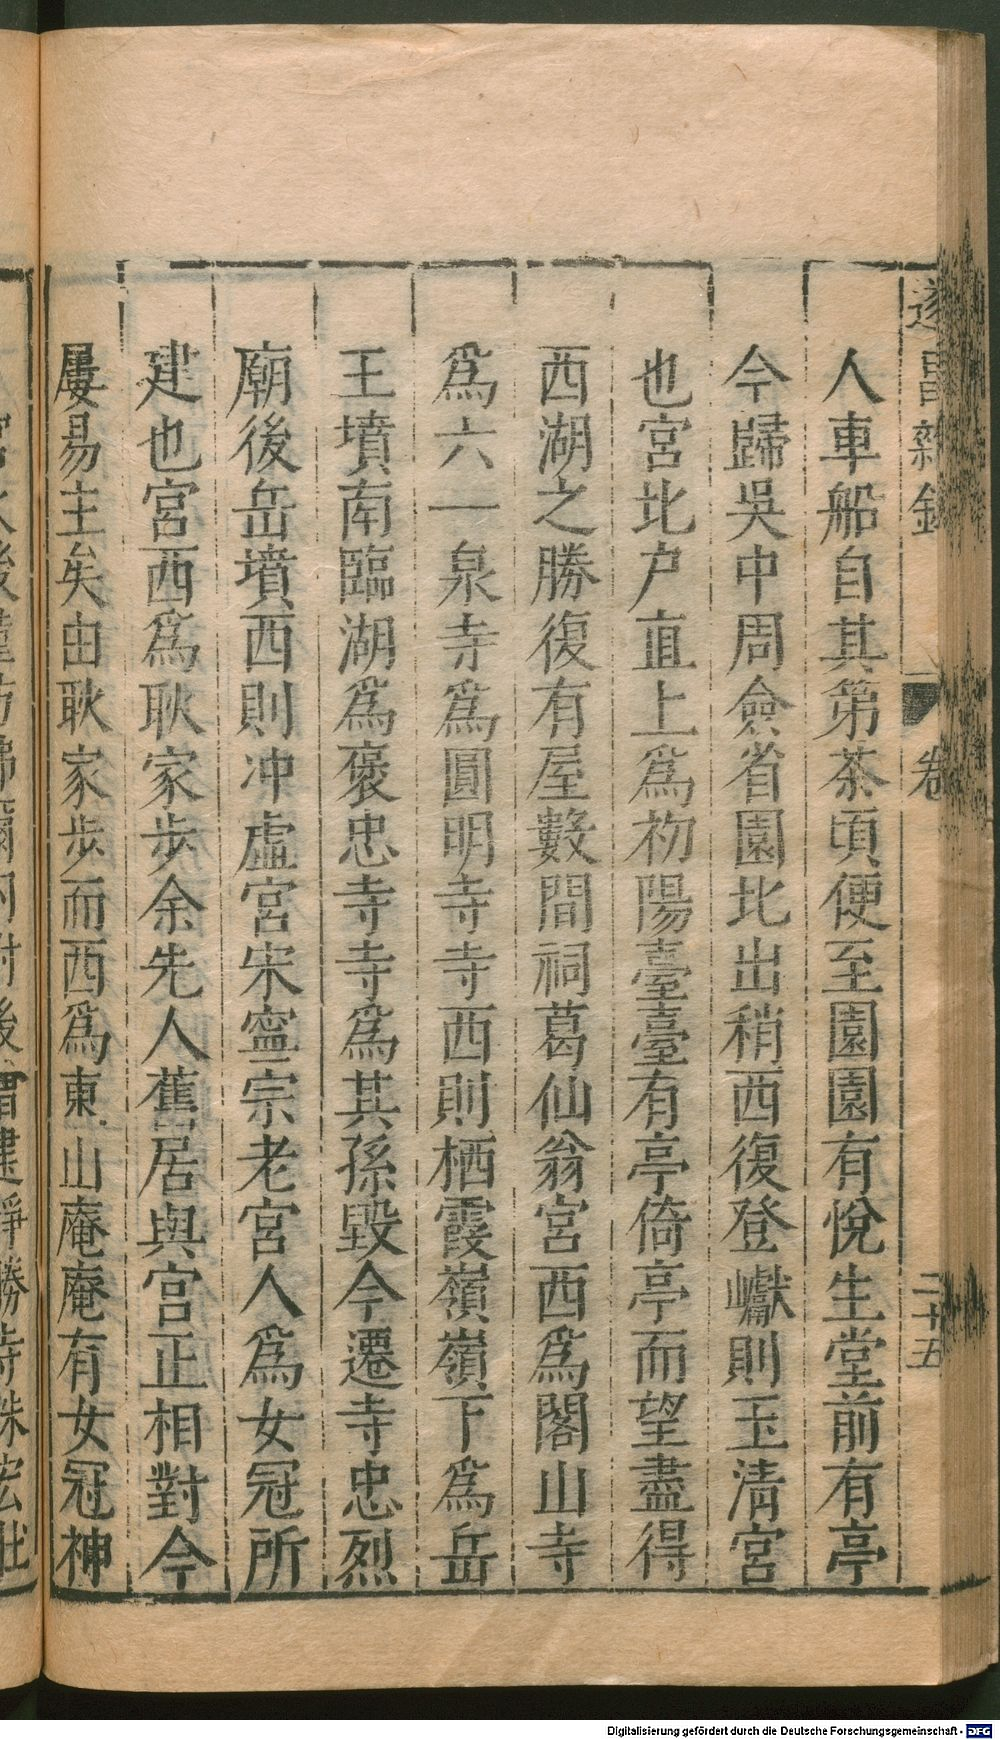 遂昌雜錄
卷
二十五
人車船自其第茶頃便至園園有悅生堂前有亭
今歸吳中周僉省園北出稍西復登巘則玉清宮
也宮北户直上為初陽臺臺有亭倚亭而望盡得
西湖之勝復有屋數間祠葛仙翁宮西為閣山寺
為六一泉寺為圓明寺寺西則栖霞嶺嶺下為岳
王墳南臨湖為褒忠寺寺為其孫毀今遷寺忠烈
廟後岳墳西則冲虛宮宋寧宗老宮人為女冠所
建也宮西為耿家步余先人舊居與宮正相對今
屢易主矣由耿家步而西為東山庵庵有女冠神
Digitalisierung gefördert durch die Deutsche Forschungsgemeinschaft - DFG